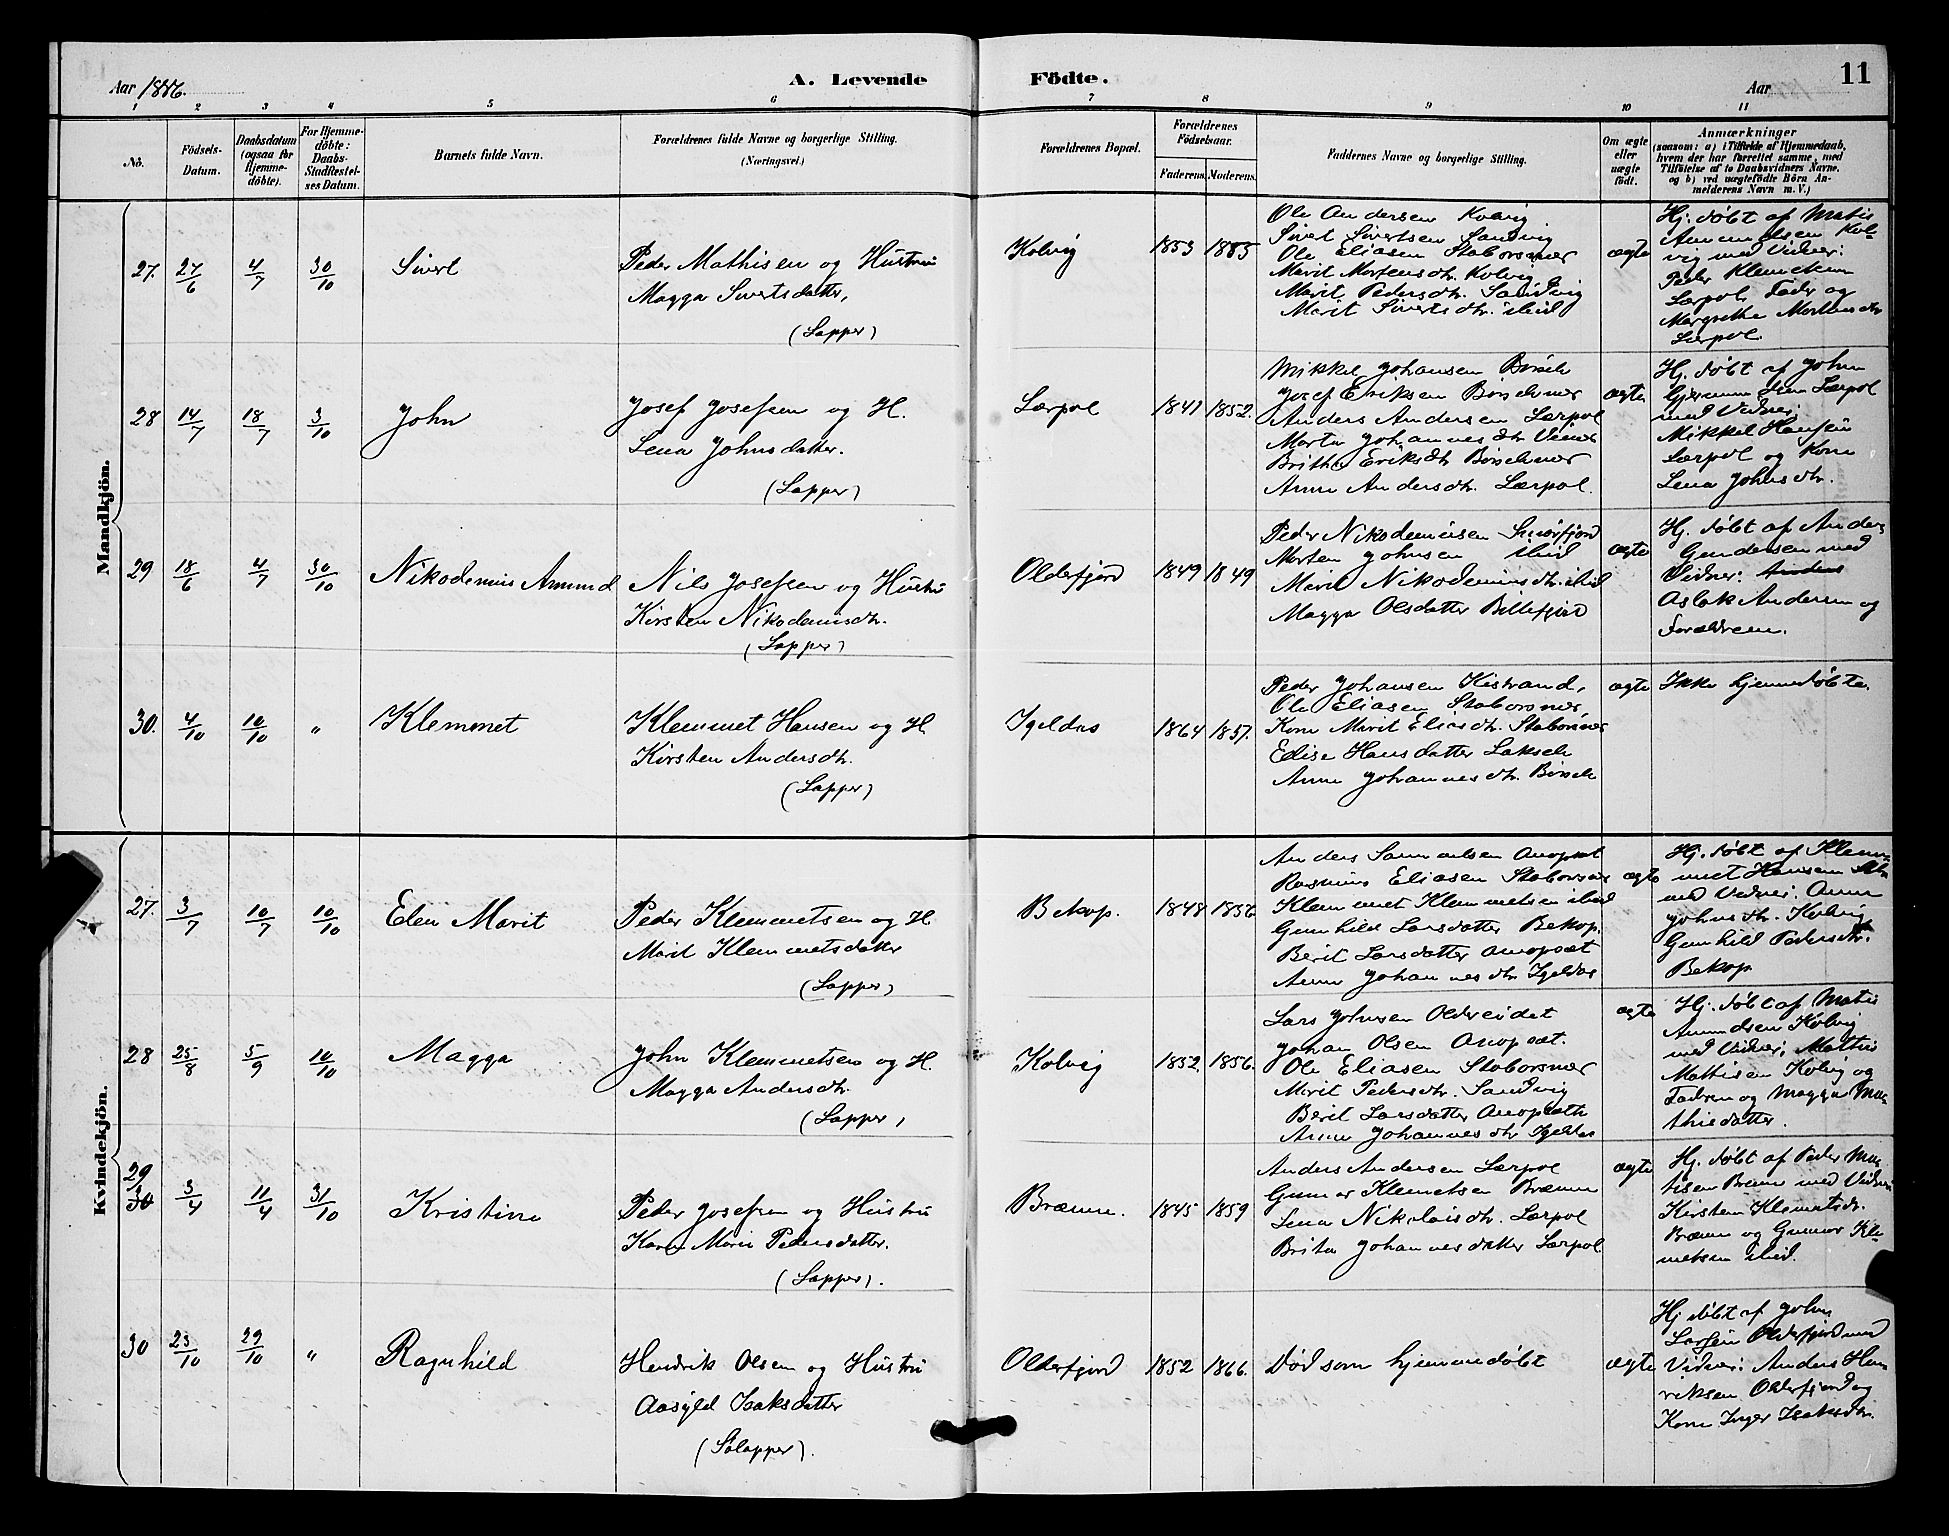 Aar 1886.
A. Levende Födte.
Aar
11
1 2 3 4 5 6 7 8 9 10 11
Nô.
Födsels-Datum.
Daabsdatum (ogsaa for Hjemme-döbte).
For Hjemme-döbte: Daabs-Stadfæstel-ses Datum.
Barnets fulde Navn.
Forældrenes fulde Navne og borgerlige Stilling.
(Næringsvei.)
Forældrenes Bopæl.
Forældrenes Födselsaar.
Faderens. Moderens.
Faddernes Navne og borgerlige Stilling.
Om ægte eller uægte födt.
Anmærkninger
(saasom: a) i Tilfælde af Hjemmedaab,
hvem der har forrettet samme, med
Tilföielse af to Daabsvidners Navne,
og b) ved uægtefödte Börn An-
melderens Navn m. V.)
Mandkjön.
27. 27/6 4/7 30/10 Sivert
Peder Mathisen og Hustru
Magga Sivertsdatter,
(Lapper)
Kolvig 1853 1855
Ole Andersen Kolvig
Sivert Sivertsen Sandvig
Ole Eliasen Staborsnær
Marit Mortensdtr. Kolvig
Marit Pedersdtr. Sandvig
Marit Sivertsdtr. ibid
ægte
Hj. døbt af Matis
Amundsen Kol-
vig med Vidner:
Peder Klemetsen
Lærpol, Fader og
Margrethe Mortensdtr
Lærpol.
28 14/7 18/7 3/10 John
Josef Josefsen og H.
Lena Johnsdatter.
(Lapper)
Lærpol 1841 1852.
Mikkel Johansen Børselv
Josef Eriksen Børselvnær
Anders Andersen Lærpol
Marta Johannesdtr
Britha Eriksdtr Børselvnær
Anne Andersdtr. Lærpol.
ægte
Hj. døbt af John
Lærpol
med Vidner
Mikkel Hansen
Lærpol og Kone
Lena Johnsdtr.
29 18/6 4/7 30/10 Nikodemus Amund
Nils Josefsen og Hustru
Kirsten Nikodemusdtr.
(Lapper)
Olderfjord 1849 1849
Peder Nikodemusen Smørfjord
Morten Johnsen ibid
Marit Nikodemusdtr. ibid
Magga Olsdatter Billefjord
ægte
Hj. døbt af Anders
Gundersen med
Vidner: Anders
Aslak Andersen og
Forældrene.
30. 4/10 10/10 " Klemmet
Klemmet Hansen og H.
Kirsten Andersdtr.
(Lapper)
Igeldas 1864 1857.
Peder Johansen Kistrand,
Ole Eliasen Staborsnær,
Kone Marit Eliasdtr. Staborsnær
Edise Hansdatter Lakselv
Anne Johannesdtr. Børselv
ægte
Ikke hjemmedøbte.
Kvindekjön.
27. 3/7 10/7 10/10 Elen Marit
Peder Klemmetsen og H
Marit Klemmetsdatter
(Lapper)
Bekop. 1848 1856
Anders Samuelsen Anopset
Rasmus Eliasen Staborsnær
Klemmet Klemmetsen ibid
Gunhild Larsdatter Bekop.
Berit Larsdatter Anopset
Anne Johannesdtr Igeldas
ægte
Hj. døbt af Klem-
met Hansen
med Vidner: Anne
Johnsdtr. Kolvig
Gunhild Pedersdtr.
Bekop
28 25/8 5/9 10/10 Magga
John Klemmetsen og H.
Magga Andersdtr.
(Lapper)
Kolvig 1852 1856.
Lars Johnsen Oldereidet
Johan Olsen Anopset.
Ole Eliasen Staborsnær
Marit Pedersdtr. Sandvig
Berit Larsdatter Anopseth
Anne Johannesdtr Igeldas
ægte
Hj. døbt af Matis
Amundsen Kolvig
med Vidner; Mathis
Mathisen Kolvig og
Fadren og Magga Ma-
thisdatter.
29 30 3/4 11/4 31/10 Kristine
Peder Josefsen og Hustru
Karen Marie Pedersdatter.
(Lapper).
Brænne. 1845 1859
Anders Andersen Lærpol
Gunnar Klemetsen Brænne
Lena Nikolaisdtr. Lærpol
Brita Johannesdatter Lærpol
ægte
Hj. døbt af Peder Ma-
tisen Brænne med Vidner
Kirsten Klemetsdr.
Brænne og Gunnar Kle-
metsen ibid.
30 23/10 29/10 " Ragnhild
Hendrik Olsen og Hustru
Aasyld Isaksdatter
(Sølapper).
Olderfjord 1852 1866.
Død som hjemmedøbt
ægte
Hj døbt af John
Larsen Olderfjord med
Vidner: Anders Hen-
riksen Olderfjord og
Kone Inger Isaksdtr.